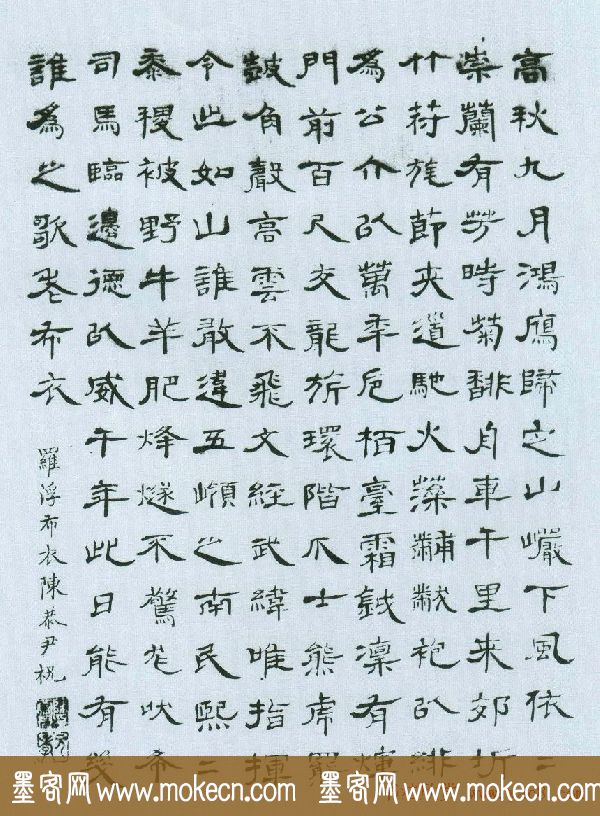 高秋九月鴻鴈歸之山巖下風依二
崇蘭有芳時菊馡舟車千里来郊圻
竹符旌節夾道馳火藻黼黻袍以緋
為公介以萬年卮栢臺霜鉞凜有煇
門前百尺交龍旂環階爪士熊虎羆
鼓角聲高雲不飛文經武緯唯指揮
令此如山誰敢違五嶺之南民熙二
黍稷被野牛羊肥烽燧不驚尨吠希
司馬臨邊德以威千年此日能有幾
誰為之歌老布衣
羅浮布衣陳恭尹祝
墨客网 www.mokecn.com 墨客网 www.mokecn.com